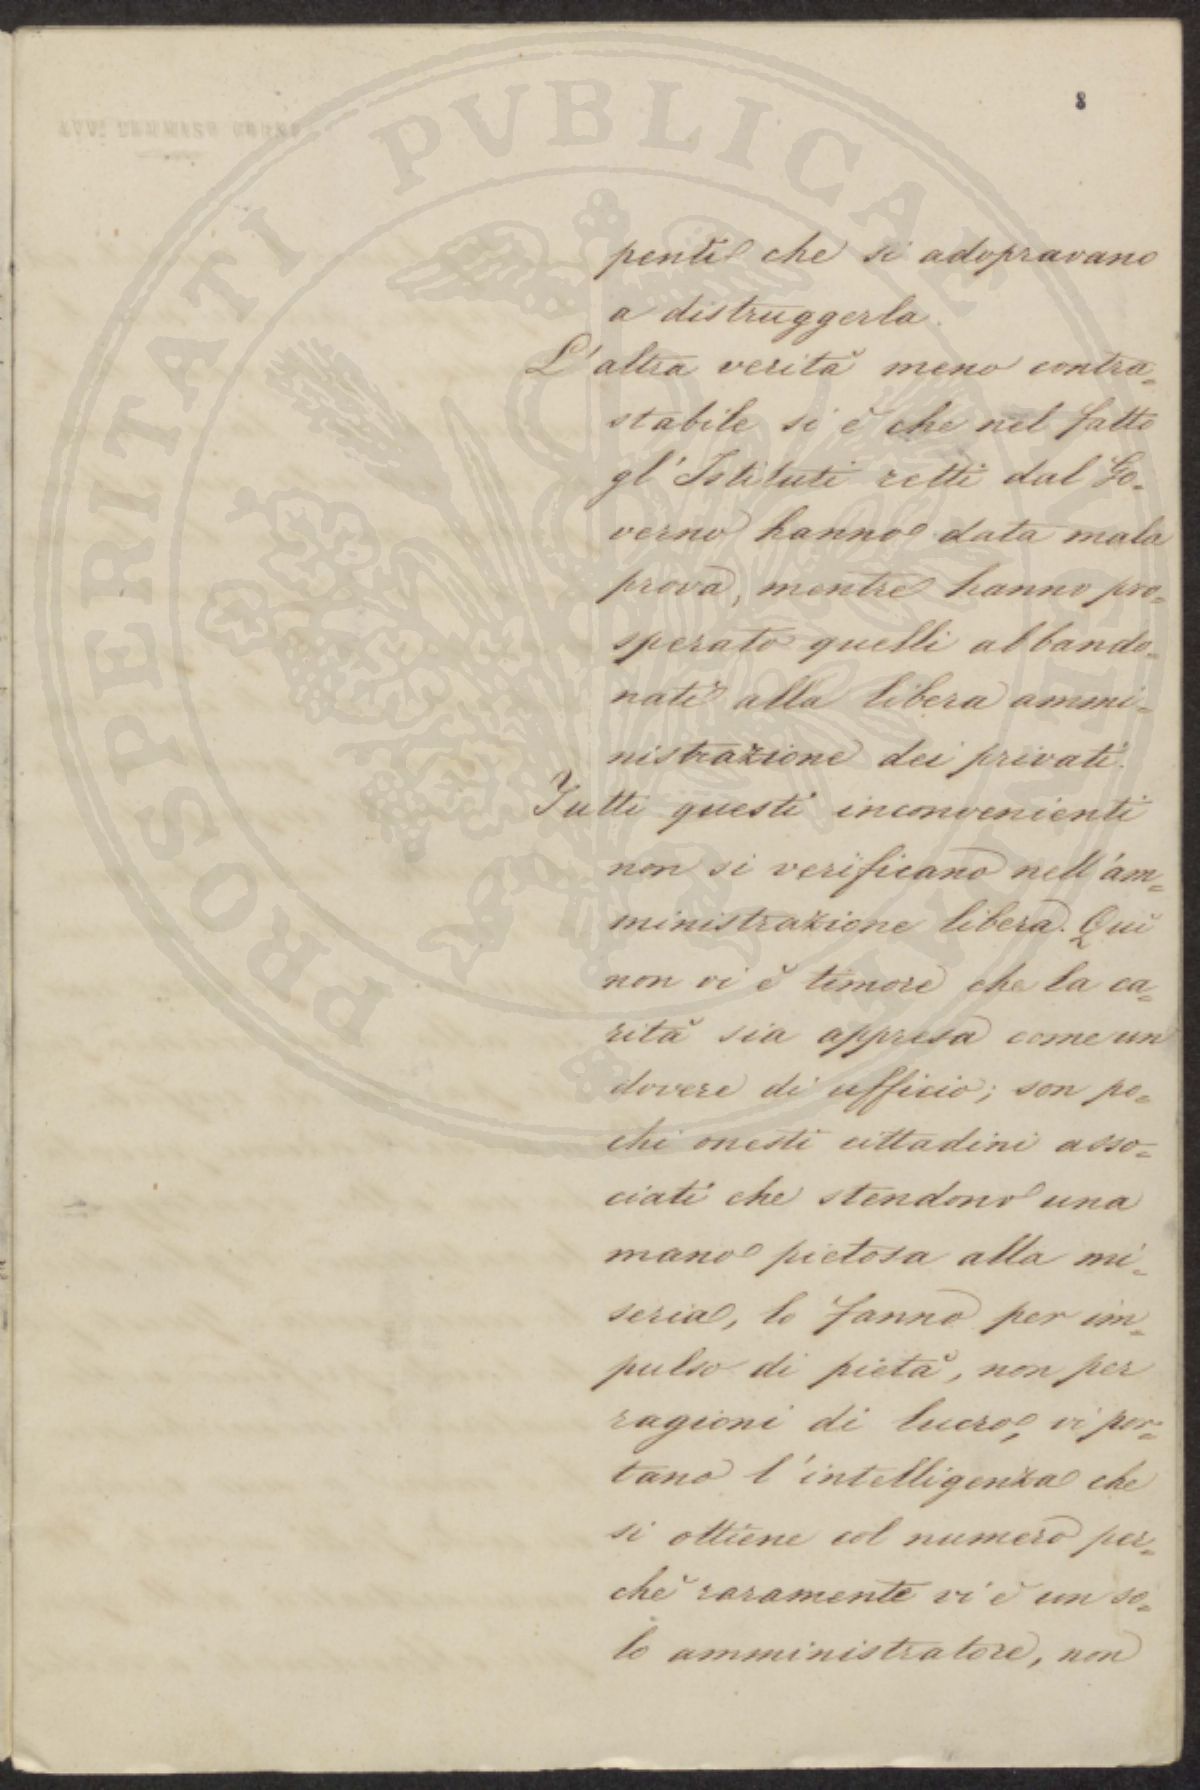 8
PROSPERITATI PVBLICAE
penti che si adopravano
a distruggerla.
L'altra verità meno contra=
stabile si è che nel fatto
gl'Istituti retti dal Go=
verno hanno data mala
prova, mentre hanno pro=
sperato quelli abbando=
nati alla libera ammi=
nistrazione dei privati.
Tutti questi inconvenienti
non si verificano nell'am=
ministrazione libera. Qui
non vi è timore che la ca=
rità sia appresa come un
dovere di ufficio; son po=
chi onesti cittadini asso=
ciati che stendono una
mano pietosa alla mi=
seria, lo fanno per im=
pulso di pietà, non per
ragioni di lucro, vi por=
tano l'intelligenza che
si ottiene col numero per=
chè raramente vi è un so=
lo amministratore, non